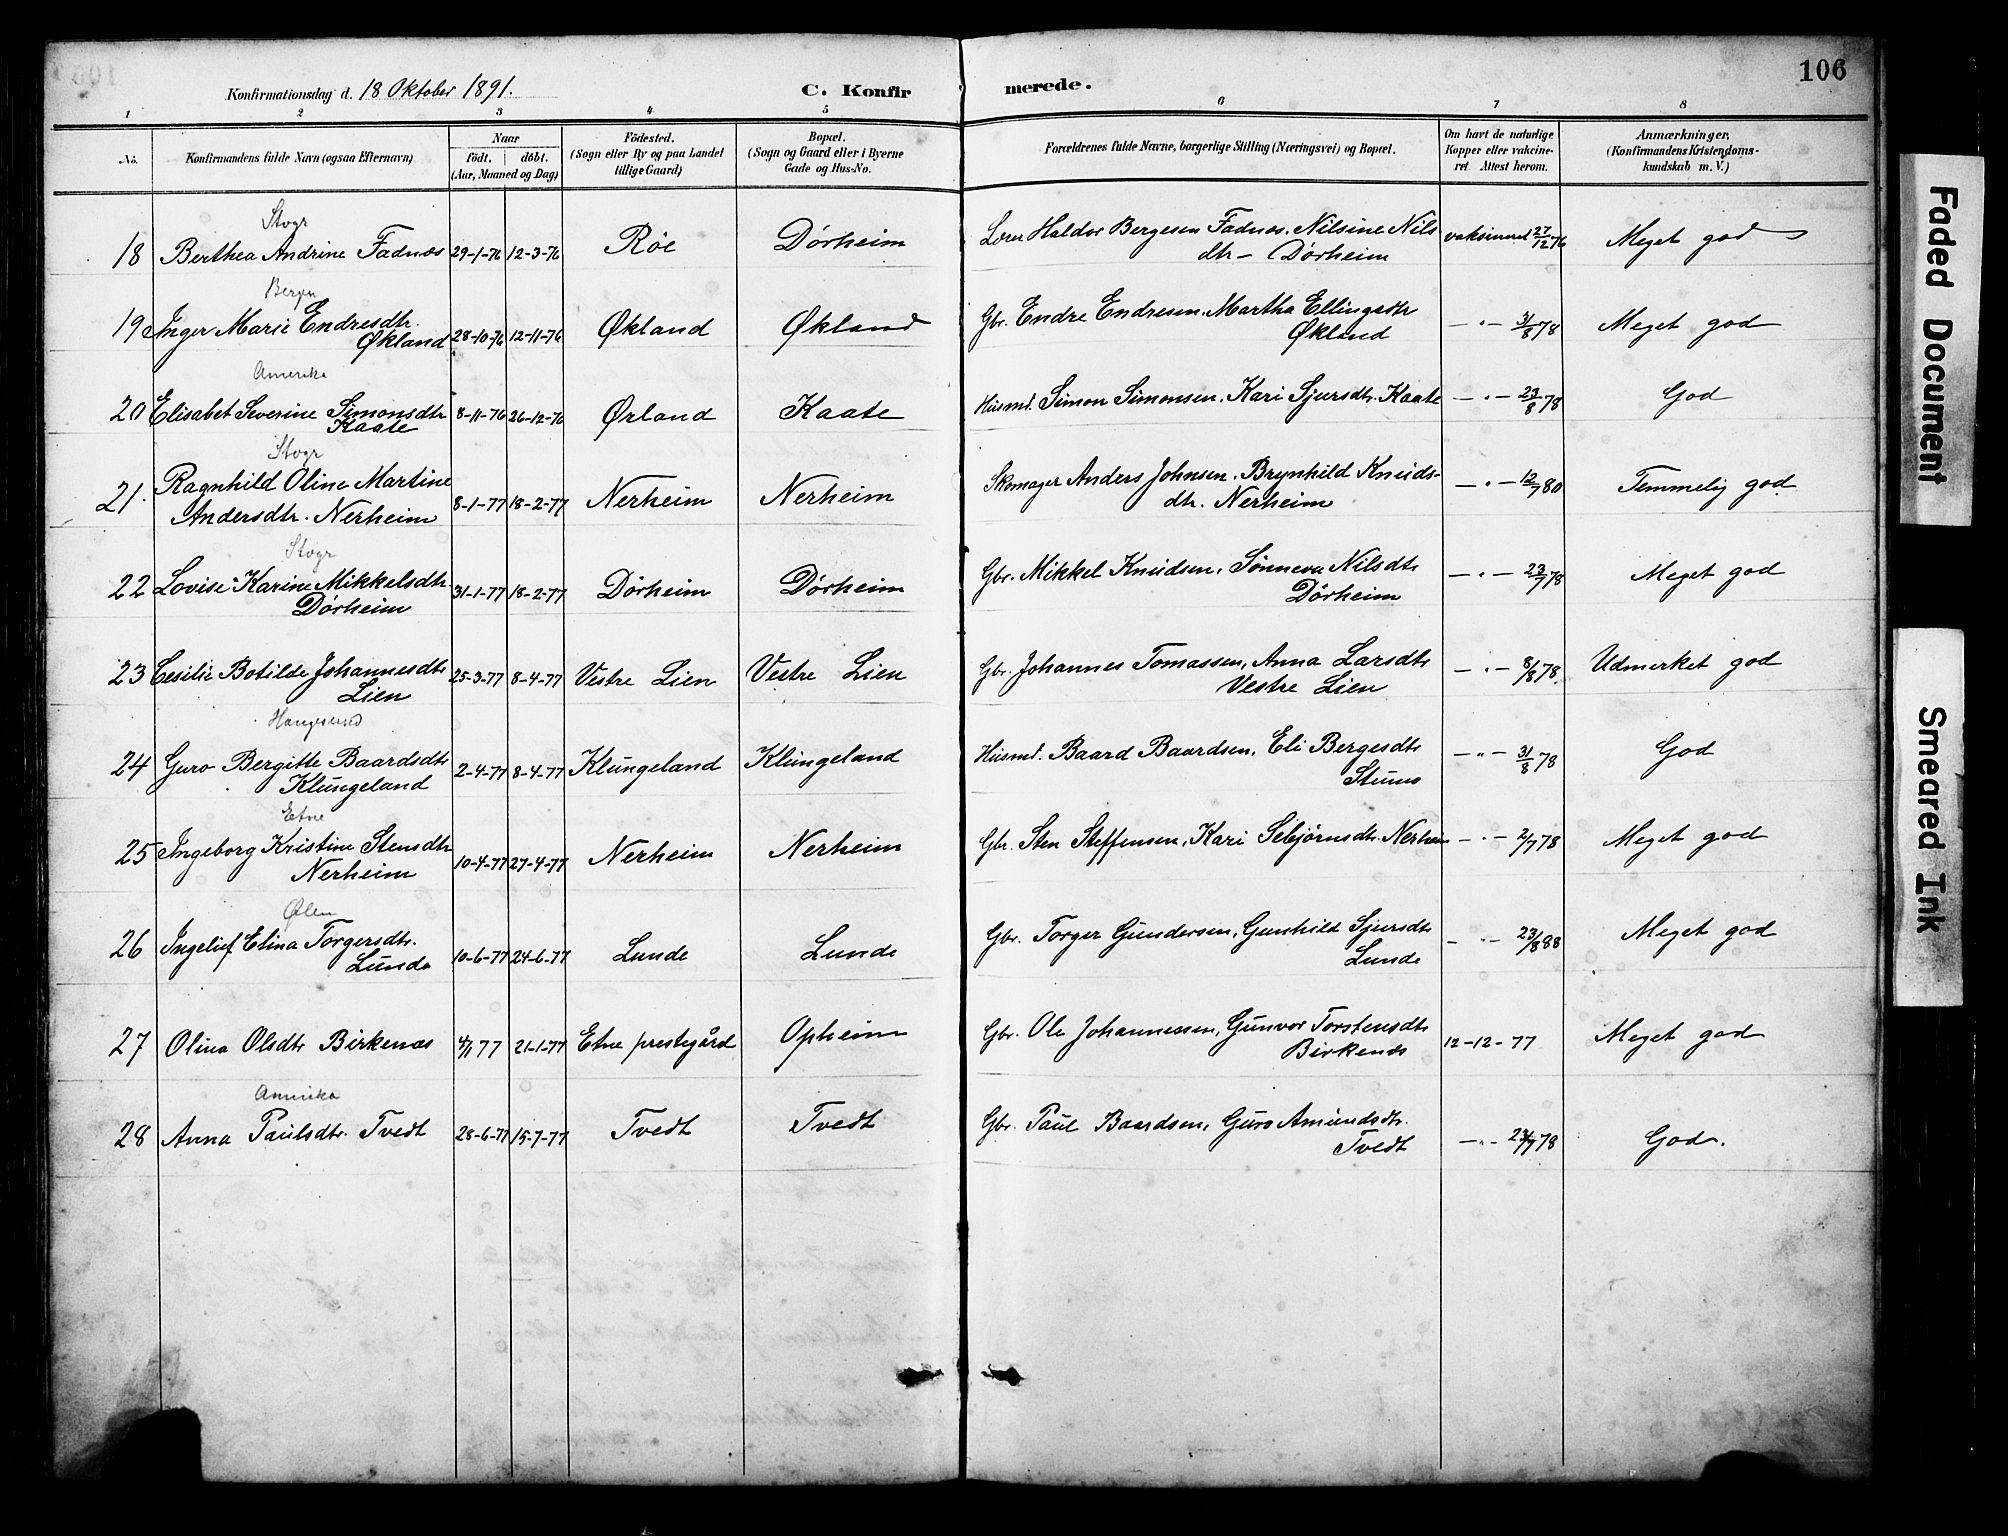 106
Konfirmationsdag d. 18 Oktober 1891.
C. Konfirmerede.
1 2 3 4 5 6 7 8
No.
Konfirmandens fulde Navn (ogsaa Efternavn)
Naar
födt. döbt.
(Aar, Maaned og Dag)
Födested.
(Sogn eller By og paa Landet
tillige Gaard)
Bopæl.
(Sogn og Gaard eller i Byerne
Gade og Hus-No.
Forældrenes fulde Navne, borgerlige Stilling (Næringsvei) og Bopæl.
Om havt de naturlige
Kopper eller vakcine-
ret Attest herom.
Anmærkninger,
(Konfirmandens Kristendoms-
kundskab m. V.)
Stvgr
18 Berthea Andrine Fadnæs 29-1-76 12-3-76 Röe Dörheim Lærer Haldor Bergesen Fadnæs. Nilsine Nils vaksineret 27/12 76 Meget god
dtr - Dörheim
Bergen
19 Inger Marie Endresdtr. 28-10-76 12-11-76 Økland Økland Gbr. Endre Endresen. Martha Ellingsdtr -"- 31/8 78 Meget god
Økland Økland
Amerika
20 Elisabet Severine Simonsdtr 8-11-76 26-12-76 Ørland Kaate Husmd. Simon Simonsen, Kari Sjursdtr. Kaate -"- 23/8 78 God
Kaate
Stvgr
21. Ragnhild Oline Martine 8-1-77 18-2-77 Nerheim Nerheim Skomager Anders Johnsen, Brynhild Knuds- -"- 12/7 80 Temmelig god
Andersdtr. Nerheim dtr. Nerheim
Stvgr
22 Lovise Karine Mikkelsdtr. 31-1-77 18-2-77 Dörheim Dörheim Gbr. Mikkel Knudsen, Sönneva Nilsdtr -"- 23/7 78 Meget god
Dörheim Dörheim
23 Cesilie Botilde Johannesdtr 25-3-77 8-4-77 Vestre Lien Vestre Lien Gbr. Johannes Tomassen, Anna Larsdtr -"- 8/8 78 Udmerket god
Lien Vestre Lien
Haugesund
24 Guro Bergitte Baardsdtr 2-4-77 8-4-77 Klungeland Klungeland Husmd. Baard Baardsen, Eli Bergesdtr -"- 31/8 78 God
Klungeland
Etne
25 Ingeborg Kristine Stensdtr 10-4-77 27-4-77 Nerheim Nerheim Gbr. Sten Steffensen, Kari Sebjörnsdtr. Nerheim -"- 2/7 78 Meget god
Nerheim
Ølen
26 Ingelief Elina Torgersdtr. 10-6-77 24-6-77 Lunde Lunde Gbr. Torger Gundersen, Gunhild Sjursdtr -"- 23/8 88 Meget god
Lunde Lunde
27 Olina Olsdtr Birkenæs 4/1 77 21-1-77 Etne prestegård Opheim Gbr. Ole Johannessen, Gunvor Torstensdtr 12-12-77 Meget god
Birkenæs
Amerika
28 Anna Paulsdtr. Tvedt 28-6-77 15-7-77 Tvedt Tvedt Gbr. Paul Baardsen, Guro Amundsdtr. -"- 23/7 78 God.
Tvedt
Faded Document
Smeared Ink